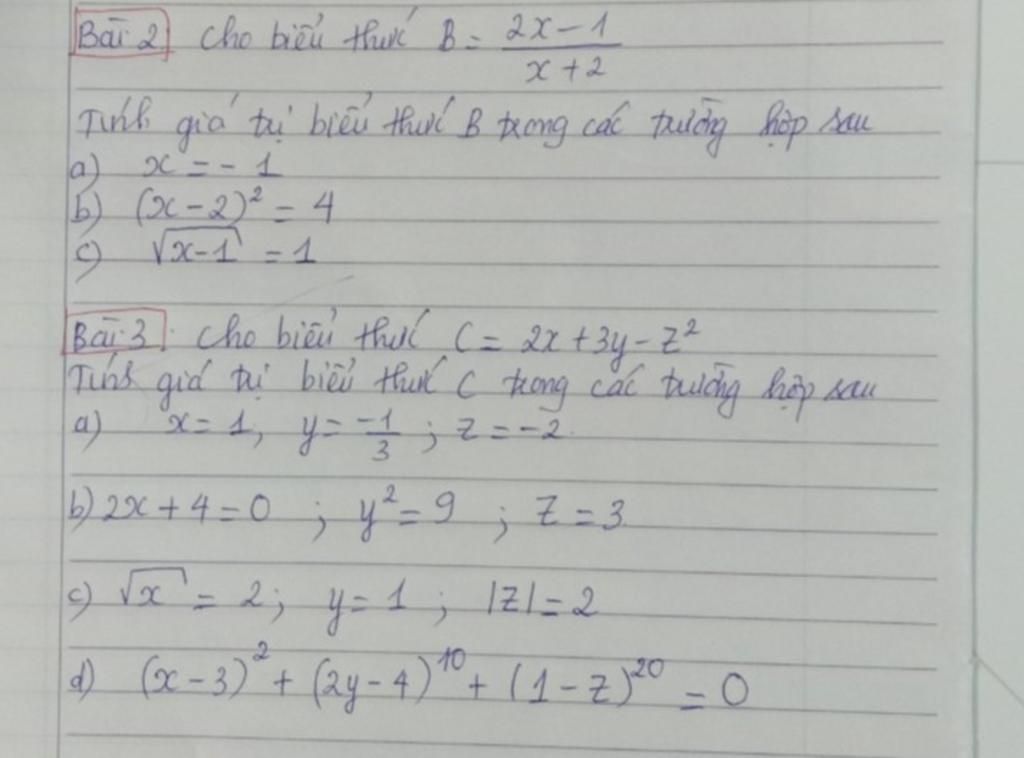 Bài 2 Cho biểu thức B = (2x-1)/(x+2)
Tính giá trị biểu thức B trong các trường hợp sau
a) x = -1
b) (x-2)² = 4
c) √(x-1) = 1
Bài 3: Cho biểu thức C = 2x+3y-z²
Tính giá trị biểu thức C trong các trường hợp sau
a) x = 1, y = -1/3 ; z = -2.
b) 2x+4=0 ; y² = 9 ; z = 3
c) √x = 2; y = 1 ; |z| = 2
d) (x-3)² + (2y-4)¹⁰ + (1-z)²⁰ = 0